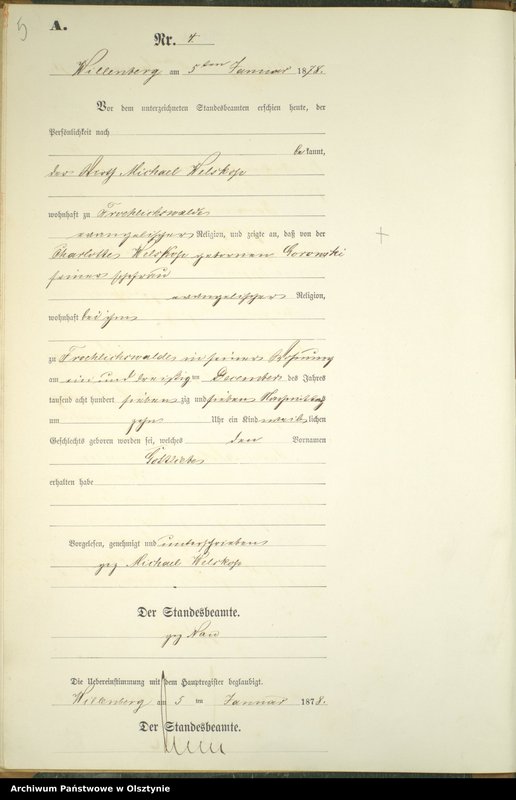 5
A.
Nr. 4.
Willenberg am 5ten Januar 1878.
Vor dem unterzeichneten Standesbeamten erschien heute, der
Persönlichkeit nach
bekannt,
der Wirth Michael Wilskop
wohnhaft zu Froehlichswalde
evangelischer Religion, und zeigte an, daß von der
Charlotte Wilskop geborenen Goronski
seiner Ehefrau
evangelischer Religion,
wohnhaft bei ihm
zu Froehlichswalde in seiner Wohnung
am ein und dreißigten December des Jahres
tausend acht hundert sieben zig und sieben Nachmittag
um zehn Uhr ein Kind weiblichen
Geschlechts geboren worden sei, welches den Vornamen
Gottliebe
erhalten habe
Vorgelesen, genehmigt und unterschrieben
gez Michael Wilskop
Der Standesbeamte.
gez Nau
Die Uebereinstimmung mit dem Hauptregister beglaubigt.
Willenberg am 5 ten Januar 1878.
Der Standesbeamte.
Archiwum Państwowe w Olsztynie